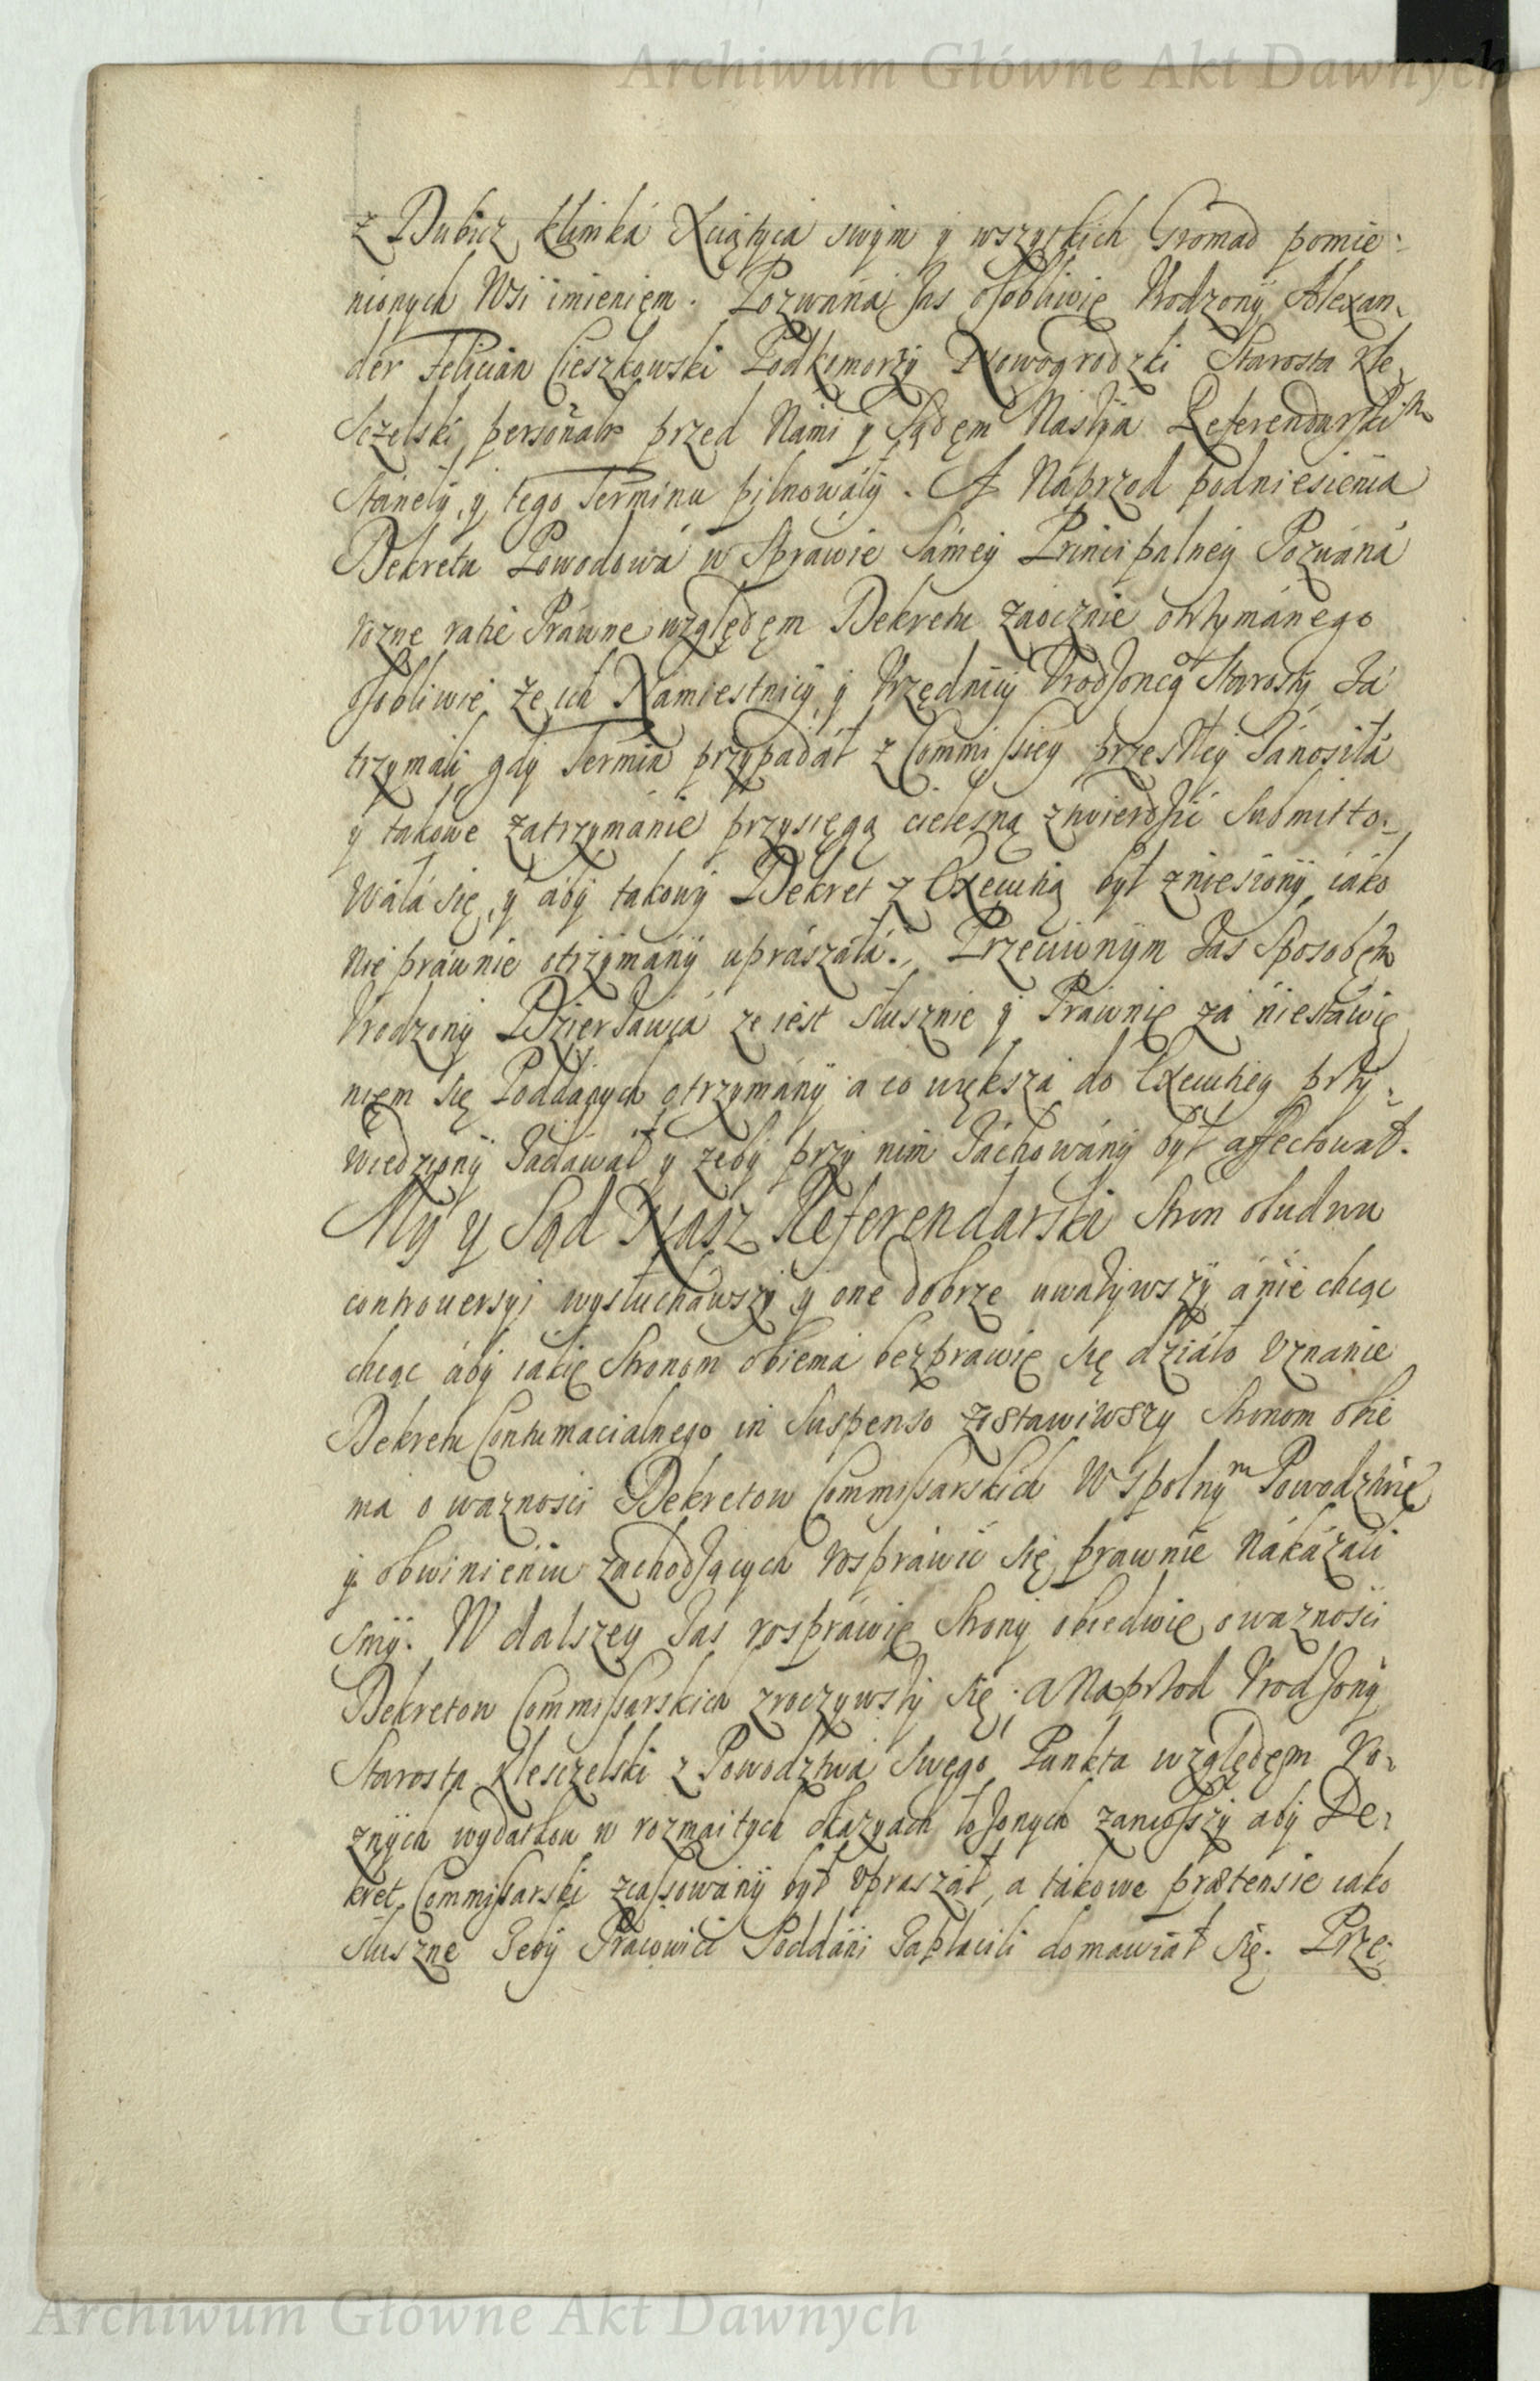 Archiwum Główne Akt Dawnych
z Dubicz Klimka Xciążyca swym y wszytkich Gromad pomie-
nionych Wsi imieniem. Pozwána zas osobliwie Urodzony Alexan-
der Felician Cieszkowski Podkomorzy Nowogrodzki Starosta Kle-
sczelski personalr przed Nami y Sądem Naszym Referendarskim
Stáneły, y tego Terminu pilnowáły. A Náprzod podniesienia
Dekretu Powodowá w Spráwie sámey Principalney Pozwáná
rozne ratie Práwne względem Dekretu záocznie otrzymánego
osobliwie ze ich Námiestnicy, y Vrzędnicy Vrodzoneg° Stárosty Zá
trzymáli gdy Termin przypadáł z Commissiey przeszłey Zánosiłá
y tákowe zátrzymánie przysięgą cielesną ztwierdzić Submitto-
wáłá się, y áby tákowy Dekret z Exekutią był zniesiony, iáko
nie práwnie otrzymány upraszáłá. Przeciwnym zas Sposobem
Vrodzony Dzierżáwcá ze iest słusznie y Práwnie zá niestáwie
niem się Poddánych otrzymány á co większa do Exekutiey przy-
wiedziony Zádáwáł y zeby przy nim Záchowány był affectował.
My y Sąd Nasz Referendarski Stron obudwu
controuersyi wysłucháwszy y one dobrze uważywszy á nie chcąc
chcąc áby iákie Stronom obiemá bezpráwie się działo Vznánie
Dekretu Contumacialnego in Suspenso zostáwiwszy Stronom obie
ma o waznosci Dekretow Commissarskich W spolnym Powodztwie
y obwinieniu záchodzących rospráwić się práwnie Nákázáli
smy. W dalszey zas rospráwie Strony obiedwie, o waznosci
Dekretow Commissarskich zroczywszy się; á Naprzod Vrodzony
Starosta Klesczelski z Powodztwá Swego Punkta względem Ro-
znych wydatkow w rozmaitych okazyach łożonych zaniosszy aby De-
kret Commissarski zcassowany był Vpraszał, a tákowe prætensie iáko
słuszne Zeby Pracowici Poddani Zapłacili domawiał się. Prze-
Archiwum Główne Akt Dawnych